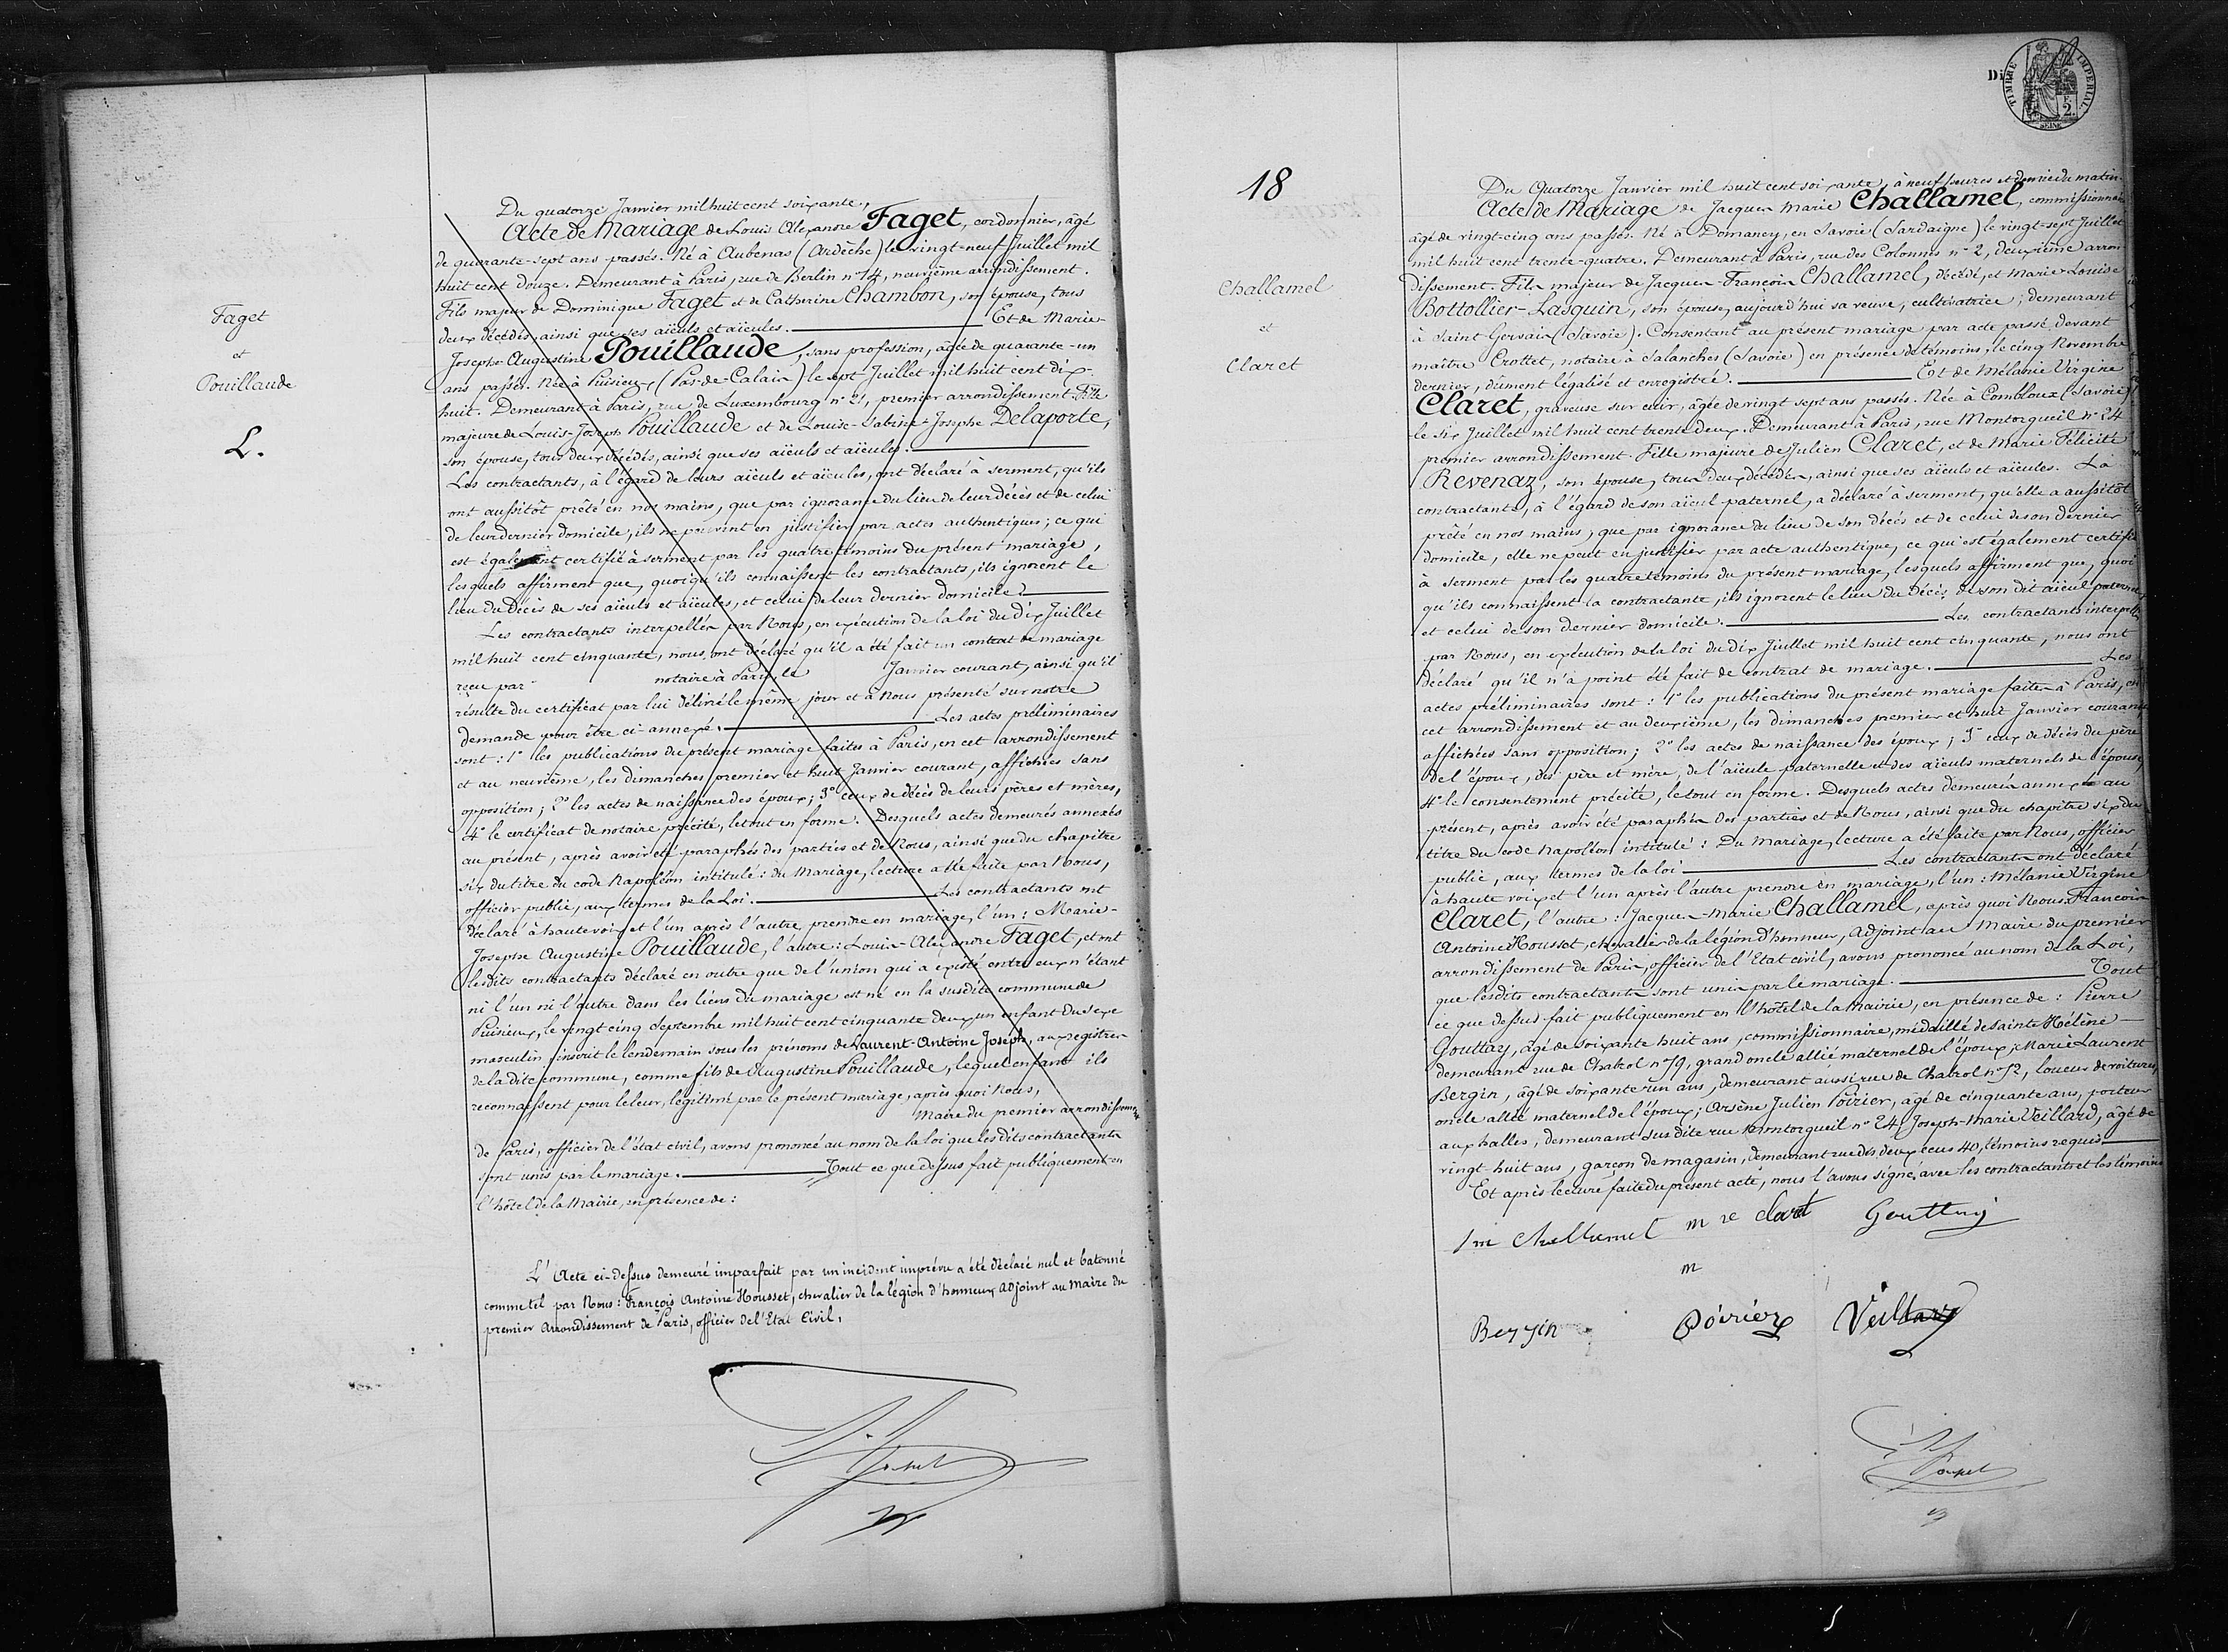 Faget
et
Pouillaude
L.
Du quatorze Janvier mil huit cent soixante,
Acte de Mariage de Louis Alexandre Faget, cordonnier, âgé
de quarante-sept ans passés. Né à Aubenas (Ardèche) le vingt-neuf Juillet mil
huit cent douze. Demeurant à Paris, rue de Berlin n° 14, neuvième arrondissement.
Fils majeur de Dominique Faget et de Catherine Chambon, son épouse, tous
deux décédés, ainsi que ses aïeuls et aïeules. Et de Marie-
Josephe Augustine Pouillaude, sans profession, âgée de quarante-un
ans passés. Née à Puisieux (Pas-de-Calais) le sept Juillet mil huit cent dix-
huit. Demeurant à Paris, rue de Luxembourg n° 21, premier arrondissement. Fille
majeure de Louis-Joseph Pouillaude et de Louise-Sabine-Josephe Delaporte,
son épouse, tous deux décédés, ainsi que ses aïeuls et aïeules.
Les contractants, à l'égard de leurs aïeuls et aïeules, ont déclaré à serment, qu'ils
ont aussitôt prêté en nos mains, que par ignorance du lieu de leur décès et de celui
de leur dernier domicile, ils ne peuvent en justifier par actes authentiques; ce qui
est également certifié à serment par les quatre témoins du présent mariage,
lesquels affirment que, quoiqu'ils connaissent les contractants, ils ignorent le
lieu du décès de ses aïeuls et aïeules, et celui de leur dernier domicile.
Les contractants interpellés par Nous, en exécution de la loi du dix Juillet
mil huit cent cinquante, nous ont déclaré qu'il a été fait un contrat de mariage
reçu par notaire à Paris, le Janvier courant, ainsi qu'il
résulte du certificat par lui délivré le même jour et à Nous présenté sur notre
demande pour être ci-annexé. Les actes préliminaires
sont: 1° les publications du présent mariage faites à Paris, en cet arrondissement
et au neuvième, les dimanches premier et huit Janvier courant, affichées sans
opposition; 2° les actes de naissance des époux; 3° ceux de décès de leurs pères et mères,
4° le certificat de notaire précité, le tout en forme. Desquels actes demeurés annexés
au présent, après avoir été paraphés des parties et de Nous, ainsi que du chapitre
six du titre du code Napoléon intitulé: du Mariage, lecture a été faite par Nous,
officier public, aux termes de la Loi. Les contractants ont
déclaré à haute voix et l'un après l'autre prendre en mariage, l'un: Marie-
Josephe Augustine Pouillaude, l'autre: Louis-Alexandre Faget, et ont
lesdits contractants déclaré en outre que de l'union qui a existé entre eux n'étant
ni l'un ni l'autre dans les liens du mariage est né en la susdite commune de
Puisieux, le vingt cinq Septembre mil huit cent cinquante deux un enfant du sexe
masculin inscrit le lendemain sous les prénoms de Laurent-Antoine Joseph, aux registres
de la dite commune, comme fils de Augustine Pouillaude, lequel enfant ils
reconnaissent pour le leur, légitimé par le présent mariage, après quoi Nous,
Maire du premier arrondissement
de Paris, officier de l'état civil, avons prononcé au nom de la loi que les dits contractants
sont unis par le mariage. Tout ce que dessus fait publiquement en
l'hôtel de la Mairie, en présence de:
L'Acte ci-dessus demeuré imparfait par un incident imprévu a été déclaré nul et batonné
comme tel par Nous: François Antoine Housset, chevalier de la légion d'honneur, Adjoint au Maire du
premier Arrondissement de Paris, officier de l'Etat Civil.
18
Challamel
et
Claret
TIMBRE IMPERIAL
2
SEINE
Du Quatorze Janvier mil huit cent soixante, à neuf heures et demie du matin
Acte de Mariage de Jacques Marie Challamel, commissionnaire
âgé de vingt-cinq ans passés. Né à Domancy, en Savoie (Sardaigne) le vingt-sept Juillet
mil huit cent trente-quatre. Demeurant à Paris, rue des Colonnes n° 2, deuxième arron-
dissement. Fils majeur de Jacques-François Challamel, décédé, et Marie-Louise
Bottollier-Lasquin, son épouse, aujourd'hui sa veuve, cultivatrice; demeurant
à Saint Gervais (Savoie). Consentant au présent mariage par acte passé devant
maître Crottet, notaire à Salanches (Savoie) en présence de témoins, le cinq Novembre
dernier, dûment légalisé et enregistré. Et de Mélanie Virginie
Claret, graveuse sur cuir, âgée de vingt sept ans passés. Née à Combloux (Savoie)
le six Juillet mil huit cent trente deux. Demeurant à Paris, rue Montorgueil n° 24
premier arrondissement. Fille majeure de Julien Claret, et de Marie Félicité
Revenaz, son épouse, tous deux décédés, ainsi que ses aïeuls et aïeules. La
contractante, à l'égard de son aïeul paternel, a déclaré à serment, qu'elle a aussitôt
prêté en nos mains, que par ignorance du lieu de son décès et de celui de son dernier
domicile, elle ne peut en justifier par acte authentique, ce qui est également certifié
à serment par les quatre témoins du présent mariage, lesquels affirment que, quoi-
qu'ils connaissent la contractante, ils ignorent le lieu du décès de son dit aïeul paternel
et celui de son dernier domicile. Les contractants interpellés
par Nous, en exécution de la loi du dix Juillet mil huit cent cinquante, nous ont
déclaré qu'il n'a point été fait de contrat de mariage. Les
actes préliminaires sont: 1° les publications du présent mariage faites à Paris, en
cet arrondissement et au deuxième, les dimanches premier et huit Janvier courant
affichées sans opposition; 2° les actes de naissance des époux; 3° ceux de décès du père
de l'époux, des père et mère, de l'aïeule paternelle et des aïeuls maternels de l'épouse,
4° le consentement précité, le tout en forme. Desquels actes demeurés annexés au
présent, après avoir été paraphés des parties et de Nous, ainsi que du chapitre six du
titre du code Napoléon intitulé: Du Mariage, lecture a été faite par Nous, officier
public, aux termes de la loi Les contractants ont déclaré
à haute voix et l'un après l'autre prendre en mariage, l'un: Mélanie Virginie
Claret, l'autre: Jacques-Marie Challamel, après quoi Nous François
Antoine Housset, chevalier de la légion d'honneur, Adjoint au Maire du premier
arrondissement de Paris, officier de l'Etat civil, avons prononcé au nom de la Loi,
que lesdits contractants sont unis par le mariage. Tout
ce que dessus fait publiquement en l'hôtel de la Mairie, en présence de: Pierre
Gouttay, âgé de soixante huit ans, commissionnaire, médaillé de Sainte Hélène
demeurant rue de Chabrol n° 79, grand oncle allié maternel de l'époux; Marie Laurent
Bergin, âgé de soixante un ans, demeurant aussi rue de Chabrol n° 72, loueur de voitures,
oncle allié maternel de l'époux; Arsène Julien Poirier, âgé de cinquante ans, porteur
aux halles, demeurant susdite rue Montorgueil n° 24; Joseph-Marie Veillard, âgé de
vingt huit ans, garçon de magasin, demeurant rue des deux écus 40, témoins requis
Et après lecture faite du présent acte, nous l'avons signé avec les contractants et les témoins
Challamel Claret Gouttay
Bergin Poirier Veillard